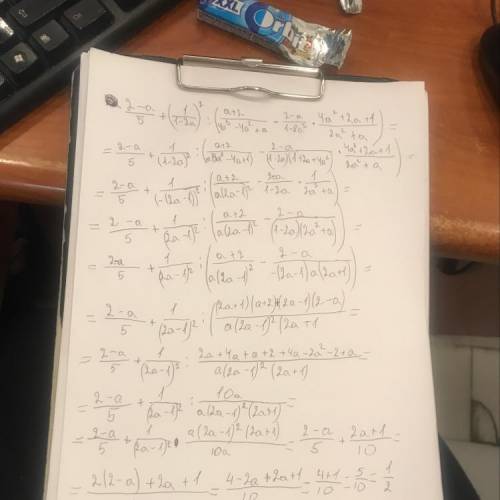 XXL Orbit
(2-a)/5 + (1/(1-2a))² : ((a+2)/(4a³-4a²+a) - (2-a)/(1-8a³) · (4a²+2a+1)/(2a²+a)) =
= (2-a)/5 + 1/(1-2a)² : ((a+2)/(a(4a²-4a+1)) - (2-a)/((1-2a)(1+2a+4a²)) · (4a²+2a+1)/(2a²+a)) =
= (2-a)/5 + 1/(-(2a-1))² : ((a+2)/(a(2a-1)²) - (2-a)/(1-2a) · 1/(2a²+a)) =
= (2-a)/5 + 1/(2a-1)² : ((a+2)/(a(2a-1)²) - (2-a)/((1-2a)(2a²+a))) =
= (2-a)/5 + 1/(2a-1)² : ((a+2)/(a(2a-1)²) - (2-a)/(-(2a-1)a(2a+1))) =
= (2-a)/5 + 1/(2a-1)² : ((2a+1)(a+2)+(2a-1)(2-a))/(a(2a-1)²(2a+1) =
= (2-a)/5 + 1/(2a-1)² : (2a+4a+a+2+4a-2a²-2+a)/(a(2a-1)²(2a+1)) =
= (2-a)/5 + 1/(2a-1)² : 10a/(a(2a-1)²(2a+1)) =
= (2-a)/5 + 1/(2a-1)² · (a(2a-1)²(2a+1))/10a = (2-a)/5 + (2a+1)/10 =
= (2(2-a)+2a+1)/ = (4-2a+2a+1)/10 = (4+1)/10 = 5/10 = 1/2